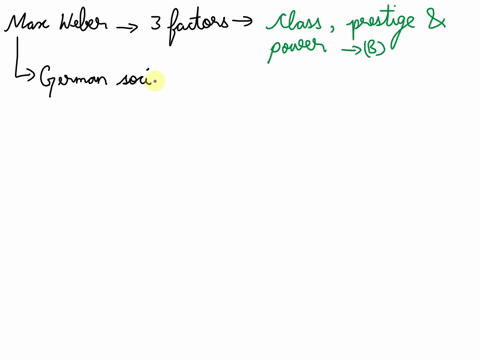 Max Weber → 3 factors → Class, prestige &
power → (B)
↳ German soci